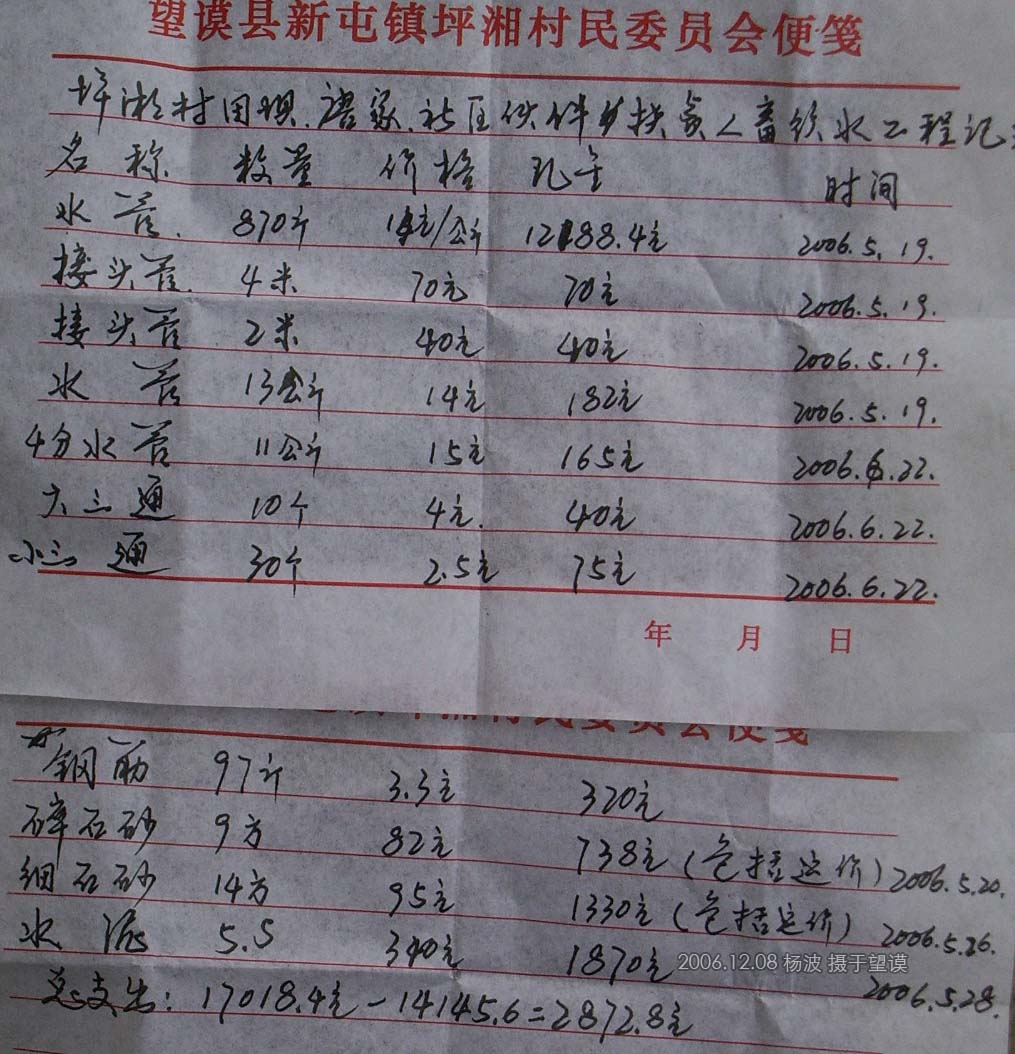 望谟县新屯镇坪湘村民委员会便笺
坪湘村田坝.唐家.社区伙伴扶贫人畜饮水工程记
名称 数量 价格 现金 时间
水管. 870斤 14元/公斤 12188.4元 2006.5.19.
接头管. 4米 70元 70元 2006.5.19.
接头管 2米 40元 40元 2006.5.19.
水管 13公斤 14元 182元 2006.5.19.
4分水管 11公斤 15元 165元 2006.6.22.
大三通 10个 4元. 40元 2006.6.22.
小三通 30个 2.5元 75元 2006.6.22.
年 月 日
村民委员会便笺
钢筋 97斤 3.3元 320元
碎石砂 9方 82元 738元(包括运价) 2006.5.20.
细石砂 14方 95元 1330元(包括运价) 2006.5.26.
水泥 5.5 340元 1870元 2006.5.28.
总支出: 17018.4元-14145.6=2872.8元
2006.12.08 杨波 摄于望谟